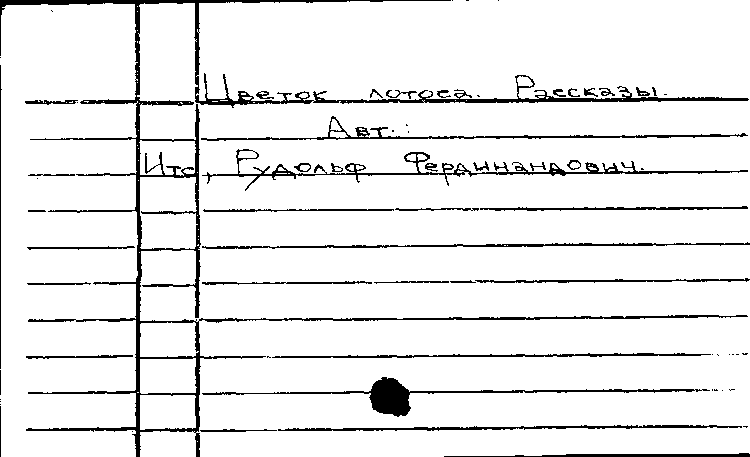 Цветок лотоса. Рассказы.
Авт.:
Итс, Рудольф Фердинандович.